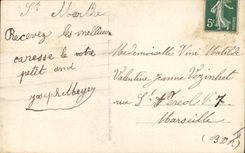 Ste Marthe
Recevez les meilleurs
caresse de votre
petit ami
Joseph Meyer
5c
Mademoiselle Viné Matilde
Valentine Jeanne Vézinhet
rue St
Marseille
(BDR)